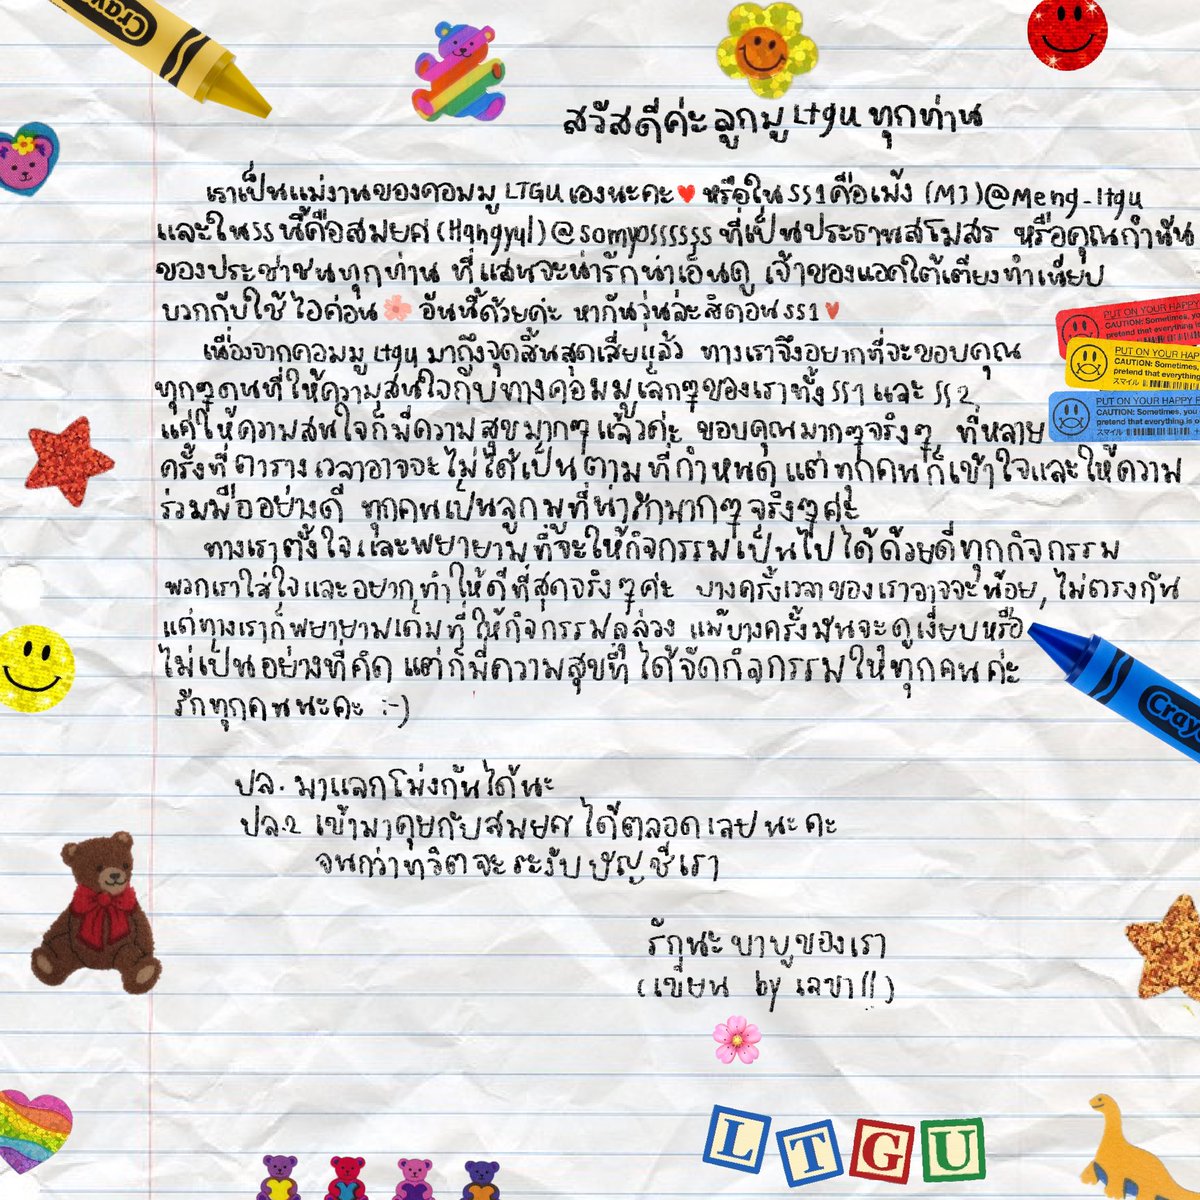 Crayo
สวัสดีค่ะ ลูกมู Ltgu ทุกท่าน
เราเป็นแม่งานของคอมมู LTGU เองนะคะ♥ หรือใน SS1 คือเม้ง (MJ)@Meng-ltgu
และใน SS นี้คือสมยศ (Hangyul)@somyossssss ที่เป็นประธานสโมสร หรือคุณกำนัน
ของประชาชนทุกท่าน ที่แสนจะน่ารักน่าเอ็นดู เจ้าของแอคใต้เตียงทำเนียบ
บวกกับใช้ไอค่อน🌸 อันนี้ด้วยค่ะ หากันวุ่นล่ะสิตอน SS1♥
เนื่องจากคอมมู Ltgu มาถึงจุดสิ้นสุดเสียแล้ว ทางเราจึงอยากที่จะขอบคุณ
ทุกๆคนที่ให้ความสนใจกับทางคอมมูเล็กๆของเราทั้ง SS1 และ SS2
แค่ให้ความสนใจก็มีความสุขมากๆแล้วค่ะ ขอบคุณมากๆจริงๆ ที่หลาย
ครั้งที่ตารางเวลาอาจจะไม่ได้เป็นตามที่กำหนด แต่ทุกคนก็เข้าใจและให้ความ
ร่วมมืออย่างดี ทุกคนเป็นลูกมูที่น่ารักมากๆจริงๆค่ะ
ทางเราตั้งใจและพยายามที่จะให้กิจกรรมเป็นไปได้ด้วยดีทุกกิจกรรม
พวกเราใส่ใจและอยากทำให้ดีที่สุดจริงๆค่ะ บางครั้งเวลาของเราอาจจะน้อย, ไม่ตรงกัน
แต่ทางเราก็พยายามเต็มที่ให้กิจกรรมลุล่วง แม้บางครั้งมันจะดูเงียบหรือ
ไม่เป็นอย่างที่คิด แต่ก็มีความสุขที่ได้จัดกิจกรรมให้ทุกคนค่ะ
รักทุกคนนะคะ :-)
ปล. มาแลกโม่งกันได้นะ
ปล.2 เข้ามาคุยกับสมยศได้ตลอดเลยนะคะ
จนกว่าทวิตจะระงับบัญชีเรา
รักนะยาบูของเรา
(เขียน by เลขา!!)
PUT ON YOUR HAPPY
CAUTION: Sometimes, you
pretend that everything
PUT ON YOUR HAPPY
CAUTION: Sometimes,
pretend that everything is
スマイル
PUT ON YOUR HAPPY F
CAUTION: Sometimes, you
pretend that everything is o
スマイル
Cray
LTGU